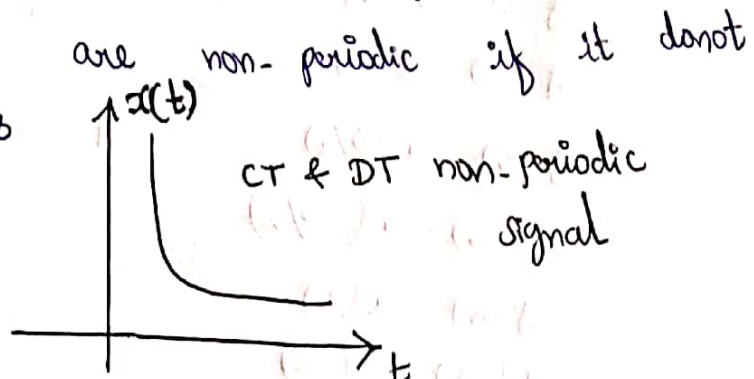 are non-periodic if it donot
x(t)
CT & DT non-periodic
signal
t